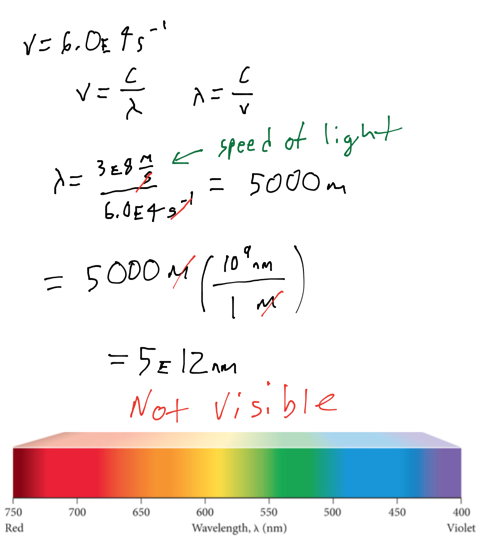 ν = 6.0E4 s⁻¹
ν = c/λ λ = c/ν
λ = 3E8 m/s / 6.0E4 s⁻¹ = 5000 m ← speed of light
= 5000 m (10⁹ nm / 1 m)
= 5E12 nm
Not visible
750 700 650 600 550 500 450 400
Red Wavelength, λ (nm) Violet